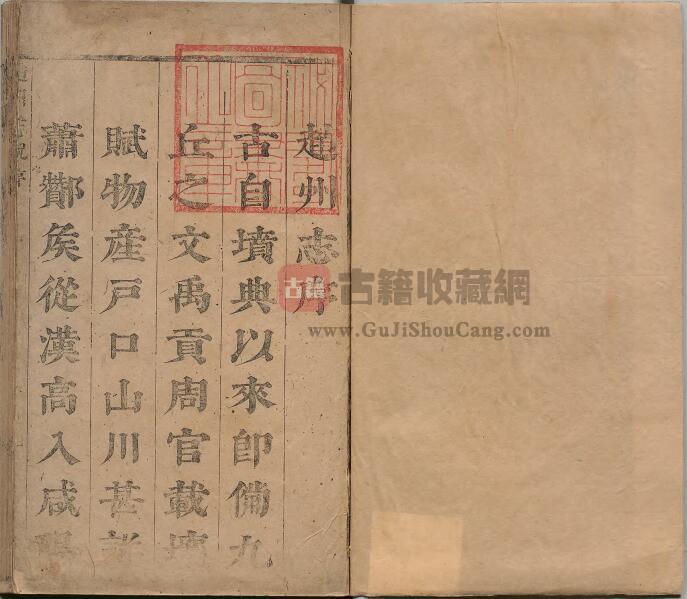 趙州志序
古自墳典以來卽備九
丘之文禹貢周官載壤
賦物產戶口山川甚
蕭酇矦從漢高入咸陽
古籍
古籍收藏網
www.GuJiShouCang.com